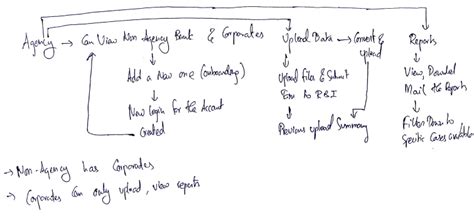 Agency → Can View Non Agency Bank & Corporates
Add a New one (onboarding)
New Login for the Account
Created
Upload Data → Convert &
upload
Upload file & Submit
Error to RBI
Previous upload Summary
Reports
View, Download
Mail the Reports
Filter Down to
Specific Cases available
→ Non-Agency has Corporates
→ Corporates Can only upload, view reports